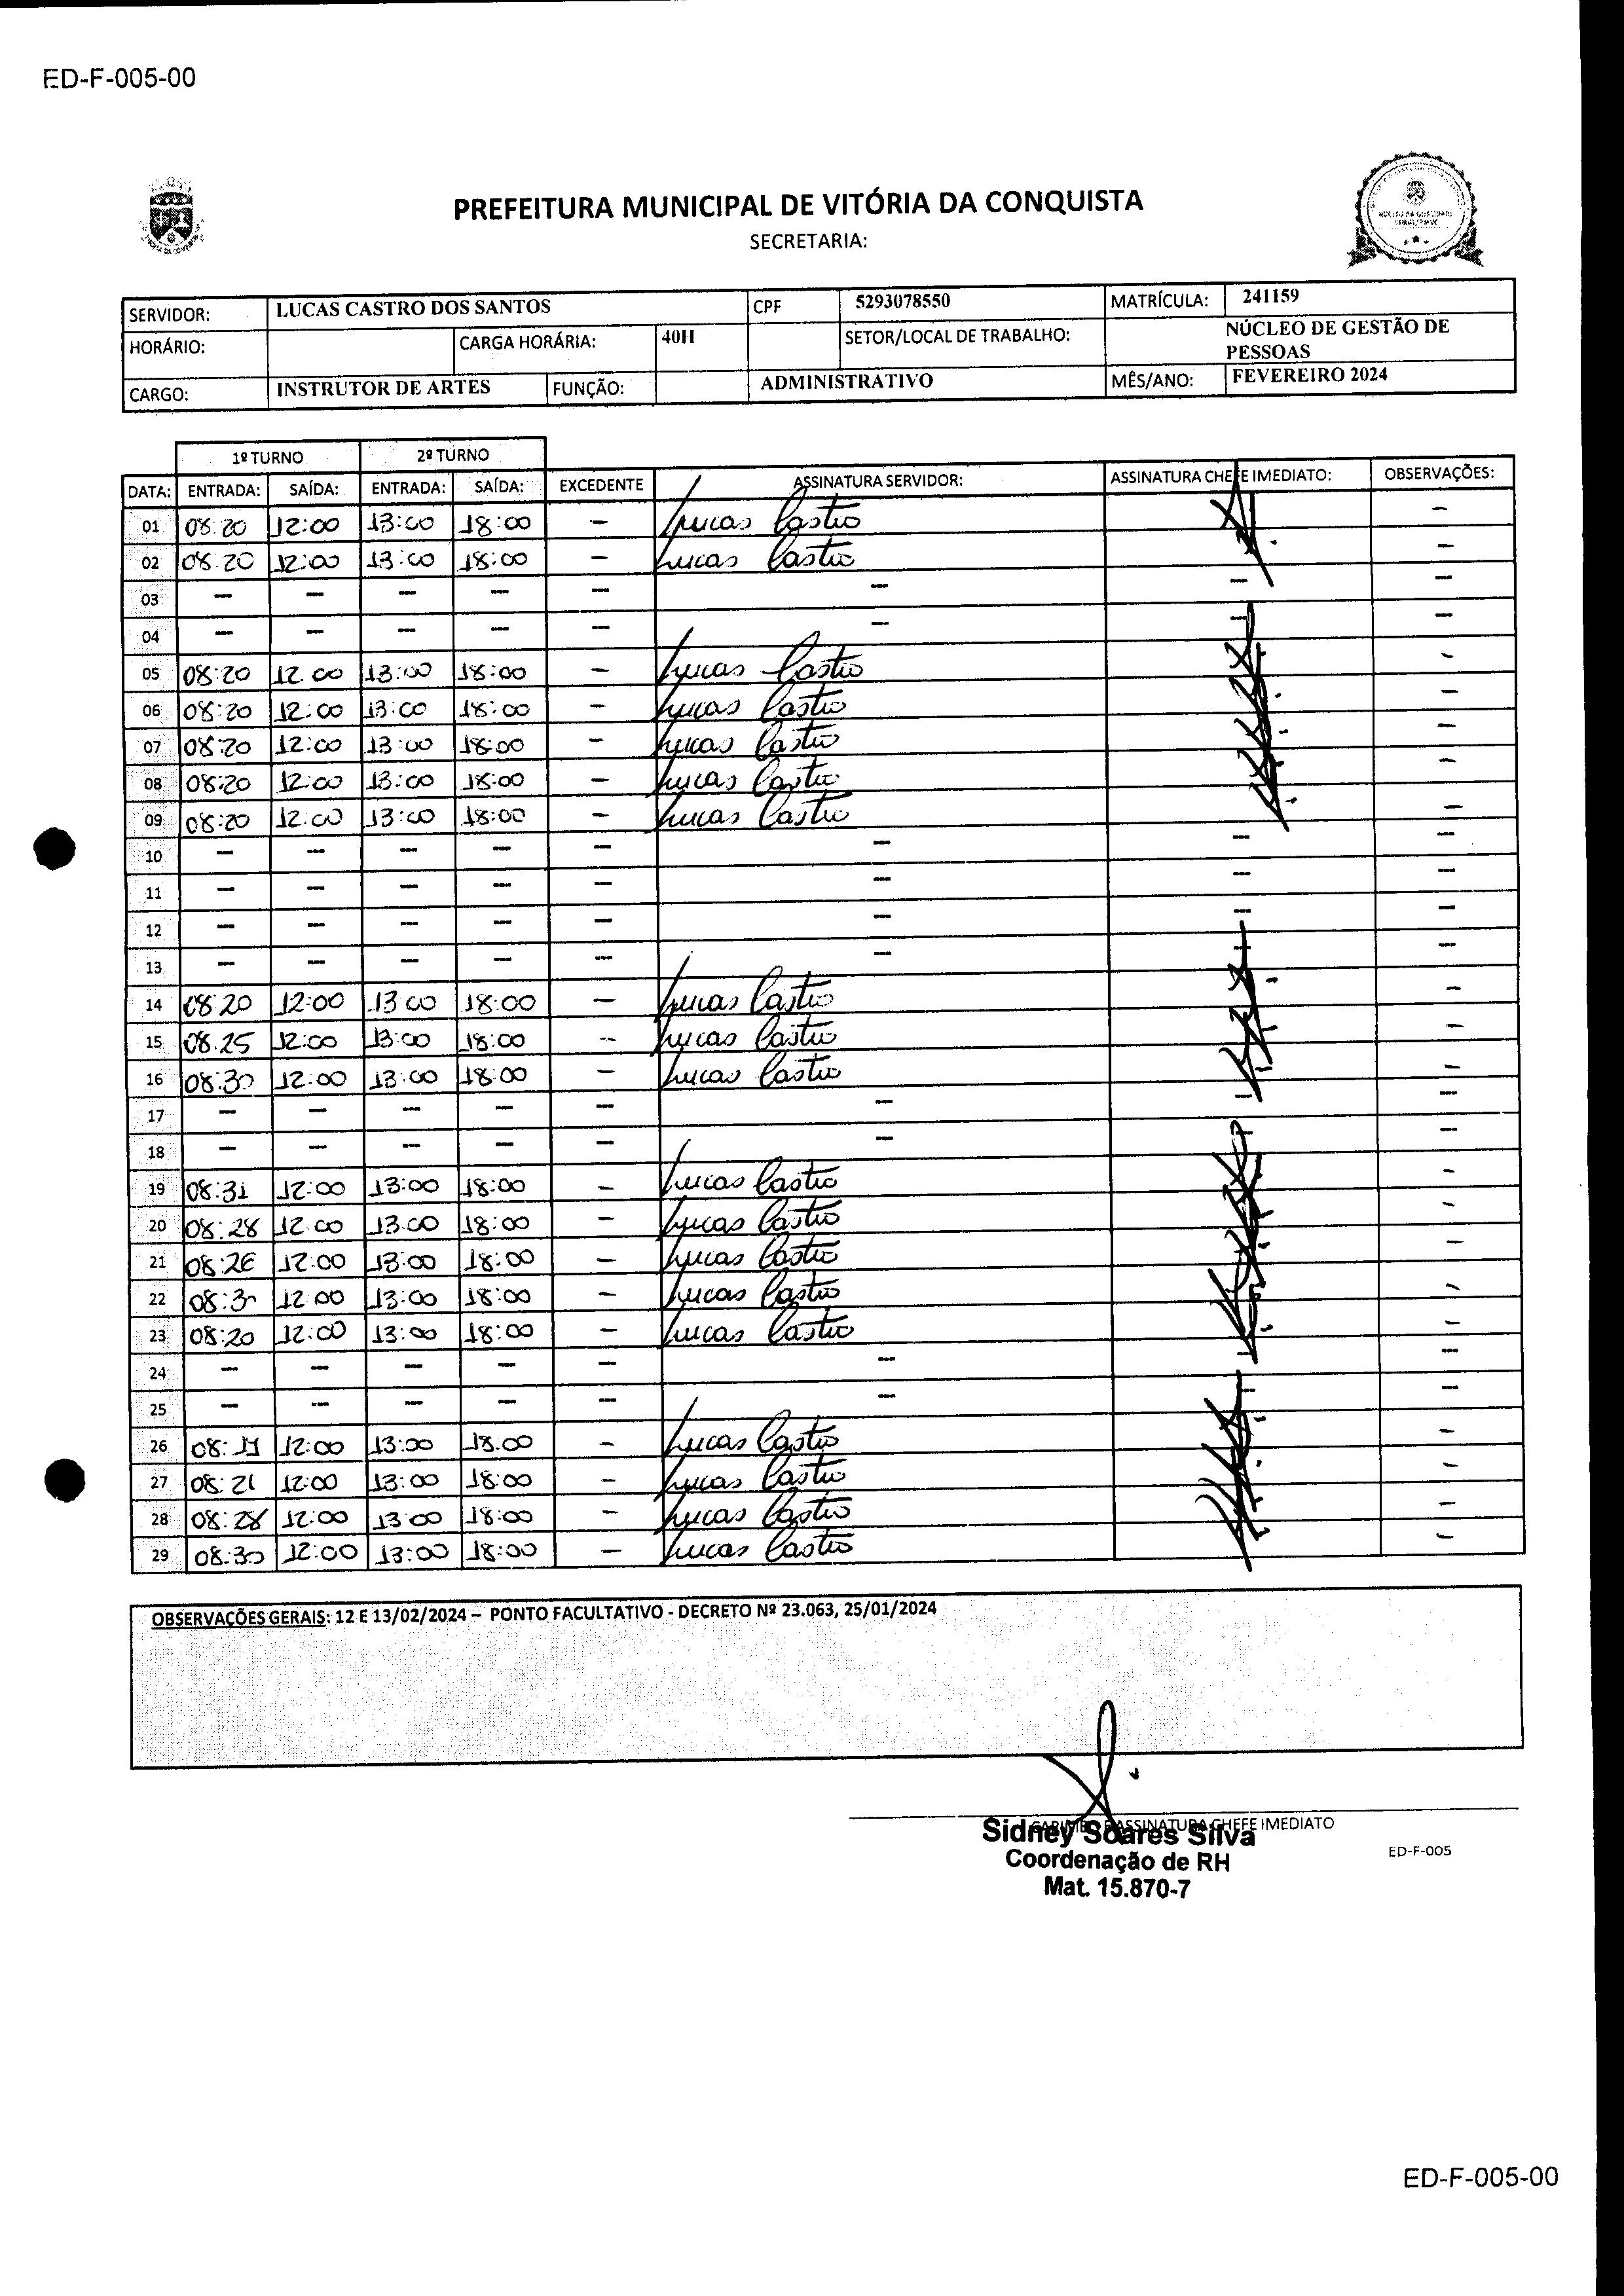 ED-F-005-00
PREFEITURA MUNICIPAL DE VITÓRIA DA CONQUISTA
SECRETARIA:
SERVIDOR: LUCAS CASTRO DOS SANTOS CPF 5293078550 MATRÍCULA: 241159
HORÁRIO: CARGA HORÁRIA: 40H SETOR/LOCAL DE TRABALHO: NÚCLEO DE GESTÃO DE
PESSOAS
CARGO: INSTRUTOR DE ARTES FUNÇÃO: ADMINISTRATIVO MÊS/ANO: FEVEREIRO 2024
1º TURNO 2º TURNO
DATA: ENTRADA: SAÍDA: ENTRADA: SAÍDA: EXCEDENTE ASSINATURA SERVIDOR: ASSINATURA CHEFE IMEDIATO: OBSERVAÇÕES:
01 08:20 12:00 13:00 18:00 — Lucas Castro —
02 08:20 12:00 13:00 18:00 — Lucas Castro —
03 — — — — — — — —
04 — — — — — — — —
05 08:20 12:00 13:00 18:00 — Lucas Castro —
06 08:20 12:00 13:00 18:00 — Lucas Castro —
07 08:20 12:00 13:00 18:00 — Lucas Castro —
08 08:20 12:00 13:00 18:00 — Lucas Castro —
09 08:20 12:00 13:00 18:00 — Lucas Castro —
10 — — — — — — — —
11 — — — — — — — —
12 — — — — — — — —
13 — — — — — — — —
14 08:20 12:00 13:00 18:00 — Lucas Castro —
15 08:25 12:00 13:00 18:00 — Lucas Castro —
16 08:30 12:00 13:00 18:00 — Lucas Castro —
17 — — — — — — — —
18 — — — — — — — —
19 08:31 12:00 13:00 18:00 — Lucas Castro —
20 08:28 12:00 13:00 18:00 — Lucas Castro —
21 08:26 12:00 13:00 18:00 — Lucas Castro —
22 08:30 12:00 13:00 18:00 — Lucas Castro —
23 08:20 12:00 13:00 18:00 — Lucas Castro —
24 — — — — — — — —
25 — — — — — — — —
26 08: 12:00 13:00 18:00 — Lucas Castro —
27 08:21 12:00 13:00 18:00 — Lucas Castro —
28 08:28 12:00 13:00 18:00 — Lucas Castro —
29 08:30 12:00 13:00 18:00 — Lucas Castro —
OBSERVAÇÕES GERAIS: 12 E 13/02/2024 – PONTO FACULTATIVO - DECRETO Nº 23.063, 25/01/2024
CARIMBO E ASSINATURA CHEFE IMEDIATO
Sidney Soares Silva
Coordenação de RH
Mat. 15.870-7
ED-F-005
ED-F-005-00